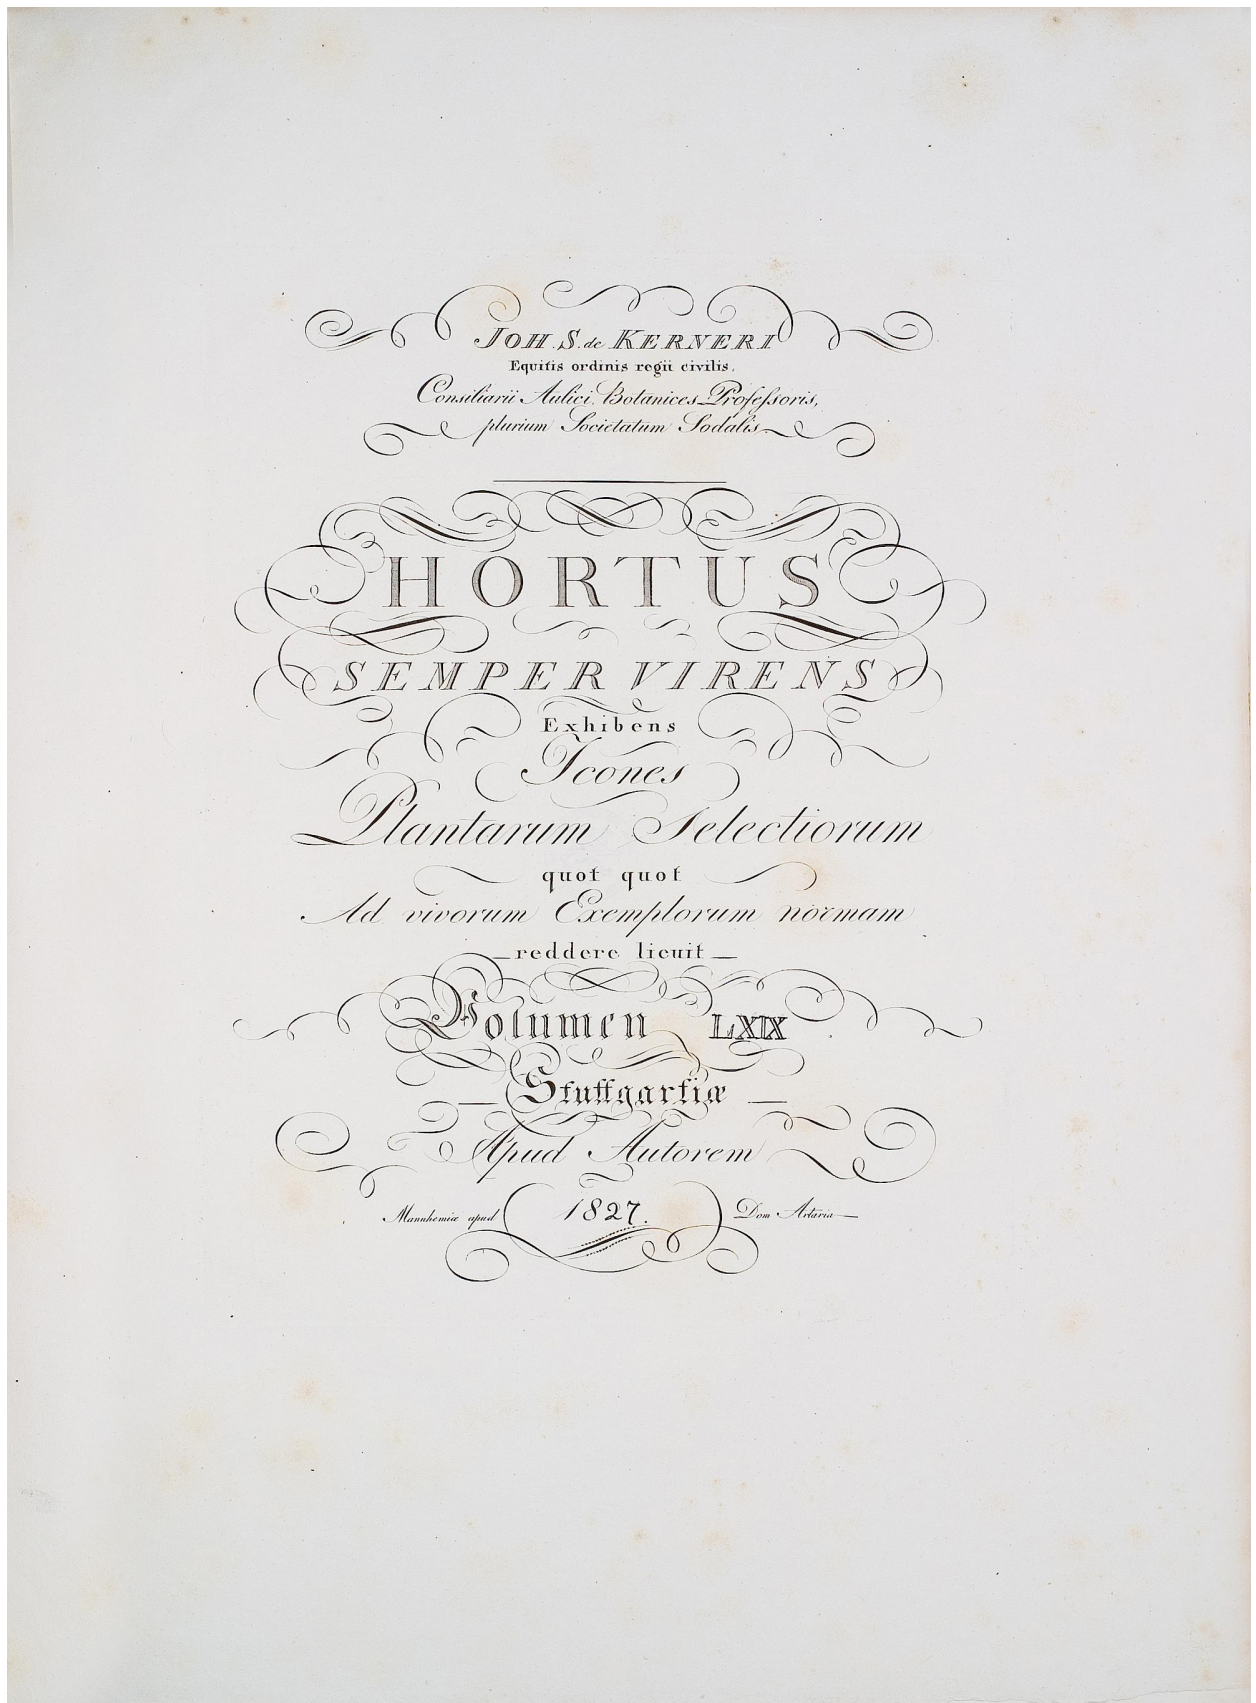 JOH. S. de KERNERI
Equitis ordinis regii civilis,
Consiliarii Aulici Botanices Profeſsoris,
plurium Societatum Sodalis
HORTUS
SEMPER VIRENS
Exhibens
Icones
Plantarum Selectiorum
quot quot
Ad vivorum Exemplorum normam
reddere licuit
Volumen LXIX
Stuttgartiæ
Apud Autorem
Mannhemiæ apud 1827. Dom Artaria